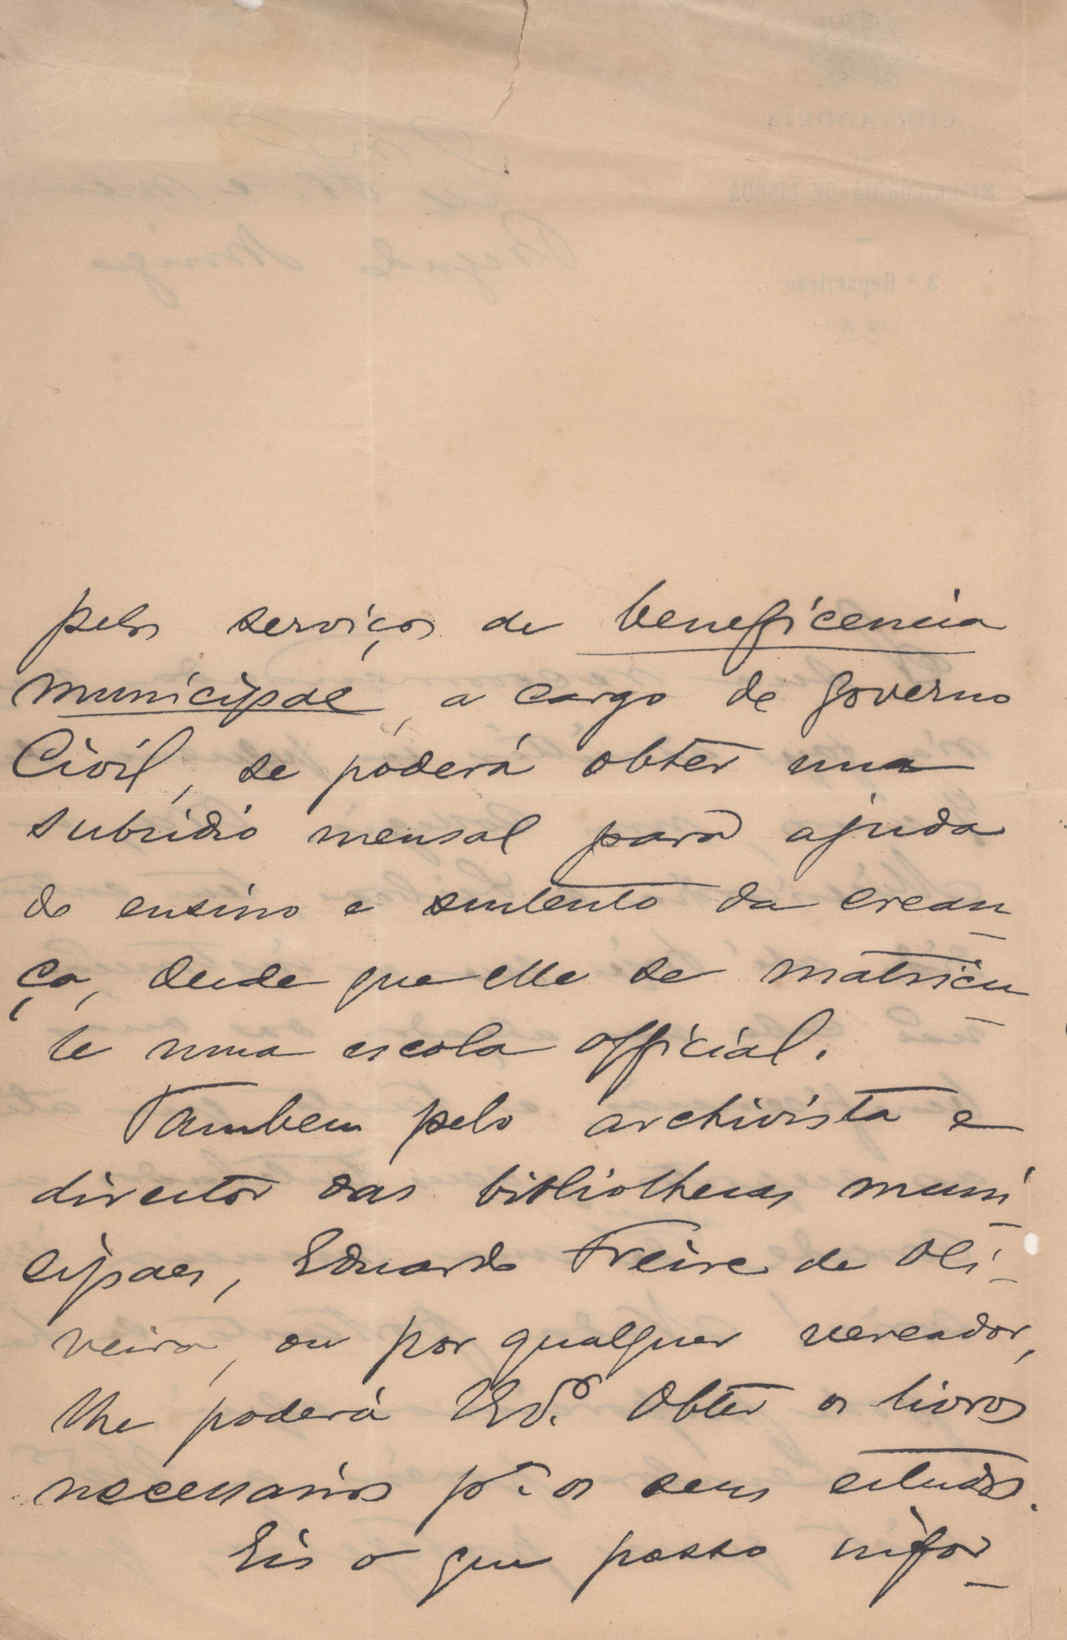 pelos serviços de beneficencia
municipal, a cargo do Governo
Civil, se póderá obter um
subsidio mensal para ajuda
do ensino e sustento da crean-
ça, desde que elle se matricu-
le numa escola official.
Tambem pelo archivista e
director das bibliothecas muni-
cipaes, Eduardo Freire de Oli-
veira, ou por qualquer vereador,
lhe poderá obter os livros
necessarios pª os seus estudos.
Eis o que posso infor-